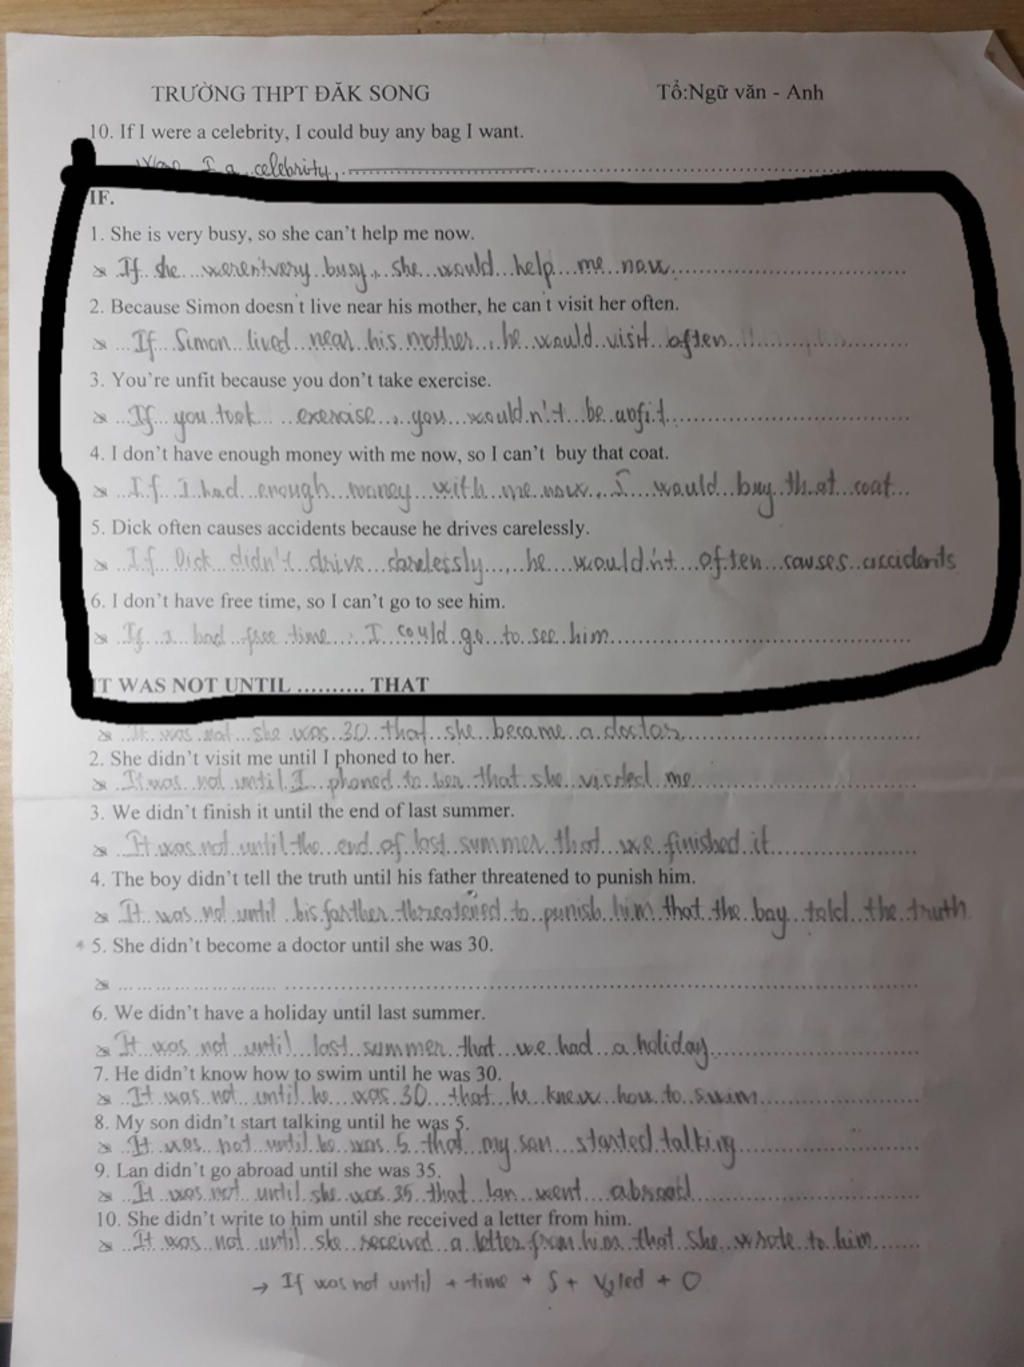 TRƯỜNG THPT ĐĂK SONG Tổ:Ngữ văn - Anh
10. If I were a celebrity, I could buy any bag I want.
I a celebrity,
IF.
1. She is very busy, so she can't help me now.
If she weren't very busy, she would help me now
2. Because Simon doesn't live near his mother, he can't visit her often.
If Simon lived near his mother, he would visit often
3. You're unfit because you don't take exercise.
If you took exercise, you wouldn't be unfit
4. I don't have enough money with me now, so I can't buy that coat.
If I had enough money with me now, I would buy that coat
5. Dick often causes accidents because he drives carelessly.
If Dick didn't drive carelessly, he wouldn't often causes accidents
6. I don't have free time, so I can't go to see him.
If I had free time, I could go to see him
IT WAS NOT UNTIL .......... THAT
It was not she was 30 that she became a doctor
2. She didn't visit me until I phoned to her.
It was not until I phoned to her that she visited me
3. We didn't finish it until the end of last summer.
It was not until the end of last summer that we finished it
4. The boy didn't tell the truth until his father threatened to punish him.
It was not until his farther threatened to punish him that the boy told the truth
* 5. She didn't become a doctor until she was 30.
6. We didn't have a holiday until last summer.
It was not until last summer that we had a holiday
7. He didn't know how to swim until he was 30.
It was not until he was 30 that he knew how to swim
8. My son didn't start talking until he was 5.
It was not until he was 5 that my son started talking
9. Lan didn't go abroad until she was 35.
It was not until she was 35 that lan went abroad
10. She didn't write to him until she received a letter from him.
It was not until she received a letter from him that she wrote to him
→ If was not until + time + S + V2/ed + O